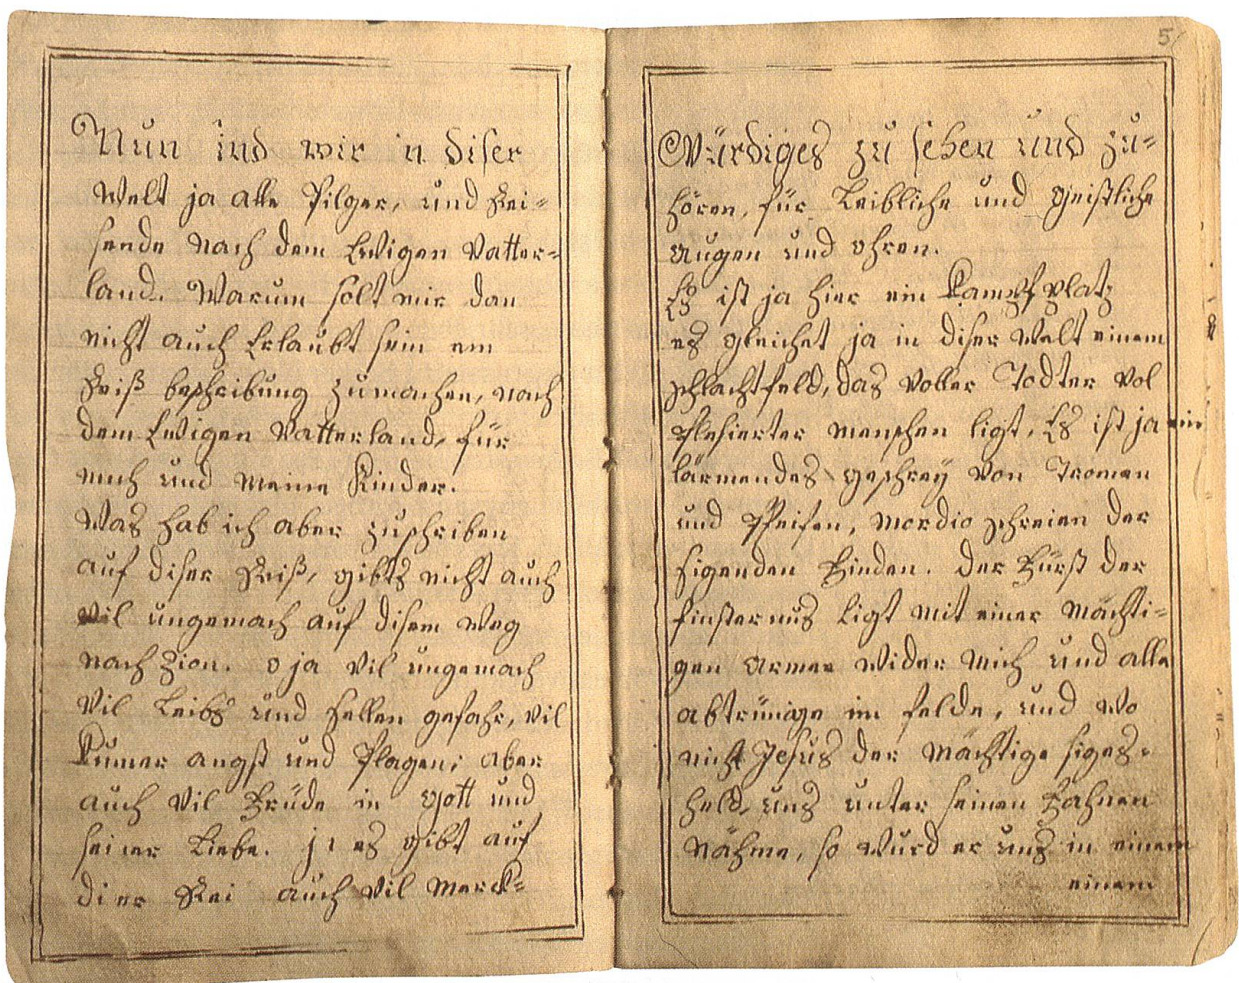 Nun ind wir in diser
Welt ja alle Pilger, und Rei=
sende nach dem Ewigen Vatter=
land. Warum solt mir dan
nicht auch Erlaubt sein ein
Reiß beschreibung zumachen, nach
dem Ewigen Vatterland, für
mich und meine Kinder.
Was hab ich aber zuschriben
auf diser Reiß, gibts nicht auch
vil ungemach auf disem Weg
nach Zion. o ja vil ungemach
Vil Leibs und Sellen gefahr, vil
Kumer angst und Plagen, aber
auch Vil Freüde in Gott und
seiner Liebe. ja es gibt auf
di er Rei auch Vil Merck=
5
Würdiges zu sehen und zu=
hören, für Leibliche und geistliche
augen und ohren.
Es ist ja hier ein Kampfplatz
es gleichet ja in diser Welt einem
schlachtfeld, das voller Todter vol
Plesierter menschen ligt, Es ist ja ein
lärmendes geschrey von Tromen
und Pfeifen, mordio schreien der
sigenden Feinden. Der Fürst der
finsternus ligt mit einer Mächti=
gen armee wider mich und alle
abtrünige im felde, und wo
nicht Jesus der Mächtige siges=
held, uns unter seinen Fahnen
Nähme, so wurd er uns in einem
einem